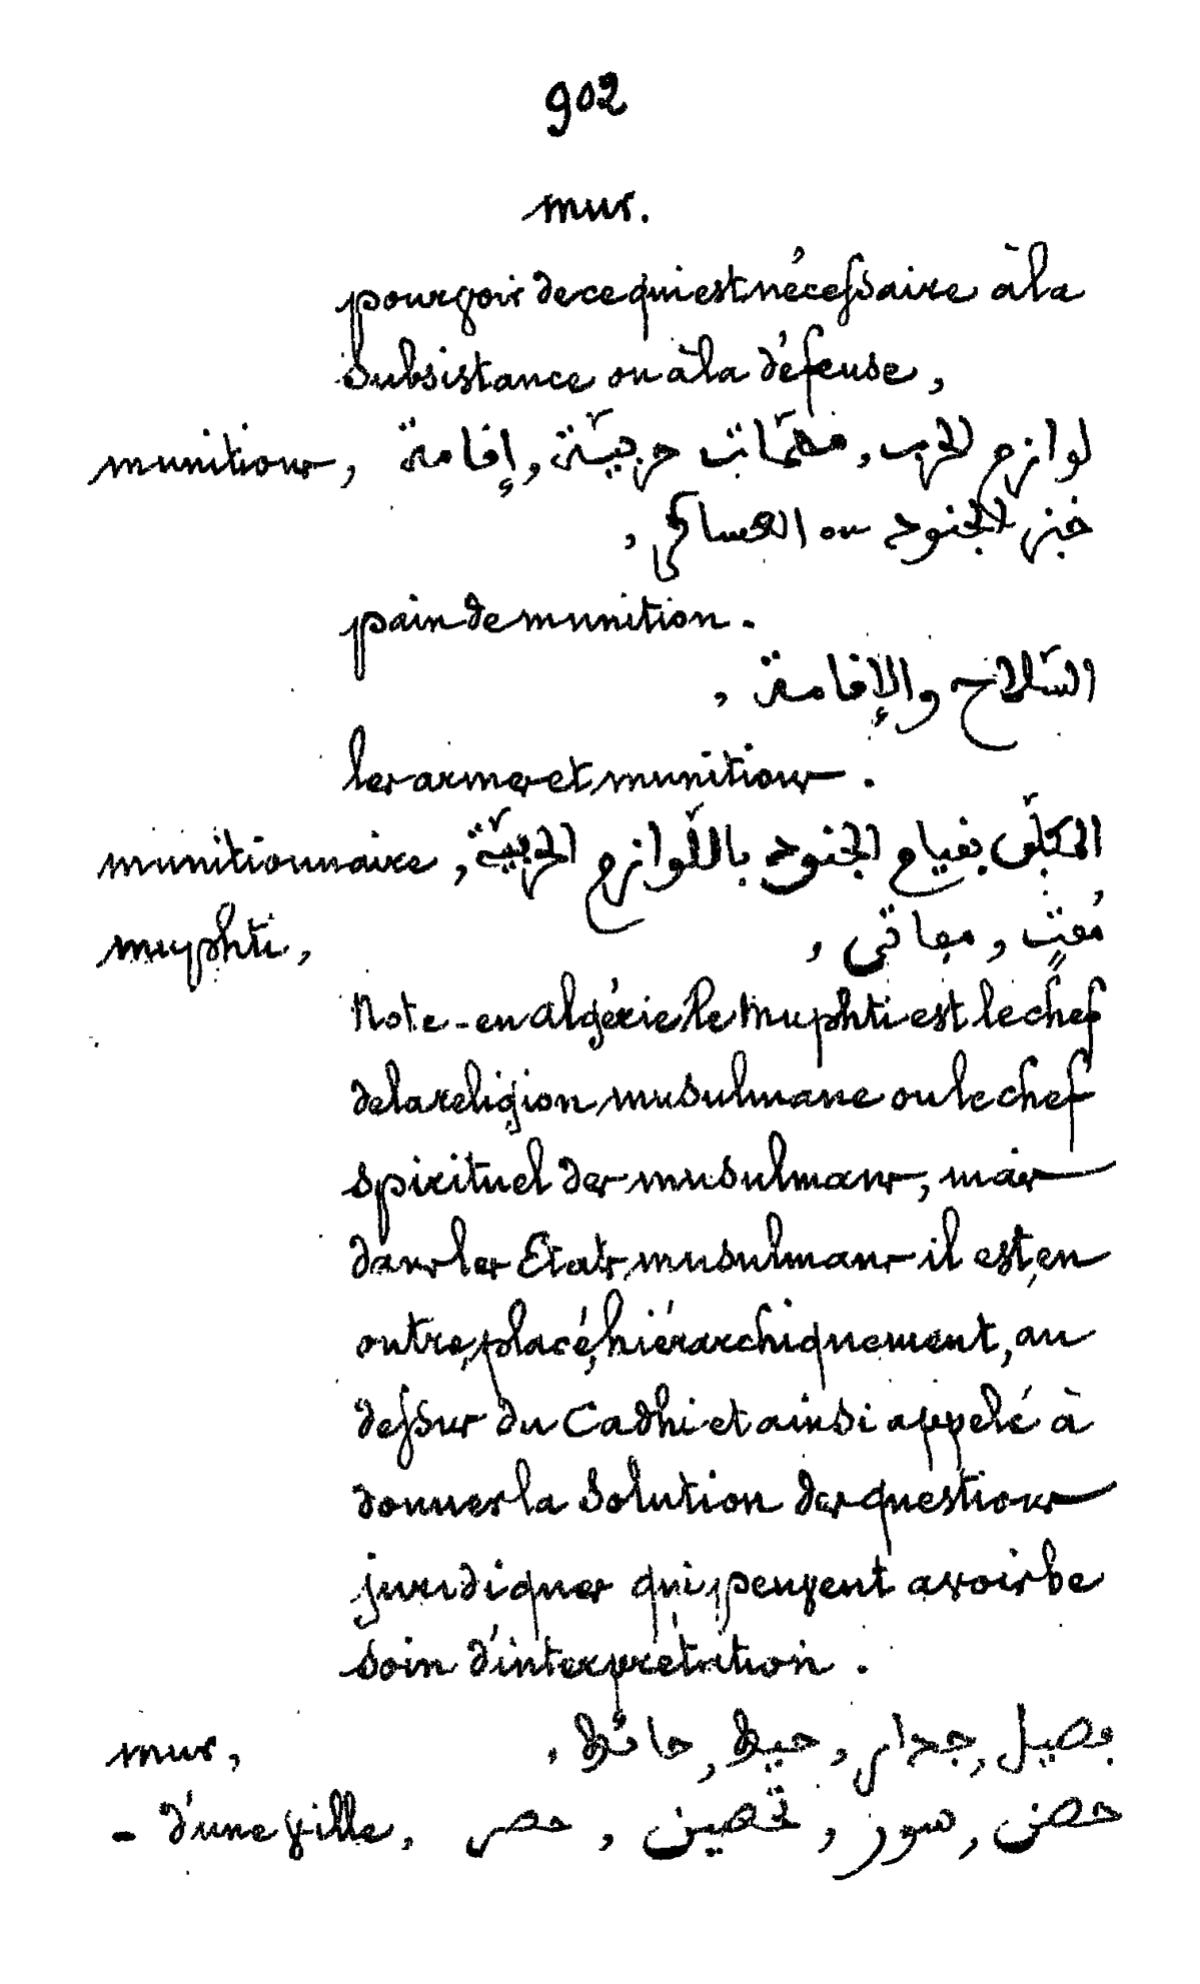 902
mur.
pourvoir de ce qui est nécessaire à la
subsistance ou à la défense,
munitions, لوازم الحرب, مهمّات حربيّة, إقامة
خبز الجنود ou العساكر,
pain de munition.
السّلاح والإقامة,
les armes et munitions.
munitionnaire, المكلّف بقيام الجنود باللّوازم الحربيّة
muphti, مُفتٍ, مفاتى,
Note - en Algérie le Muphti est le chef
de la religion musulmane ou le chef
spirituel des musulmans, mais
dans les Etats musulmans il est, en
outre, placé, hiérarchiquement, au
dessus du Cadhi et ainsi appelé à
donner la solution des questions
juridiques qui peuvent avoir be
soin d'interprétation.
mur, فصيل, جدار, حيط, حائط.
- d'une ville, حصن, سور, تحصين, حصر